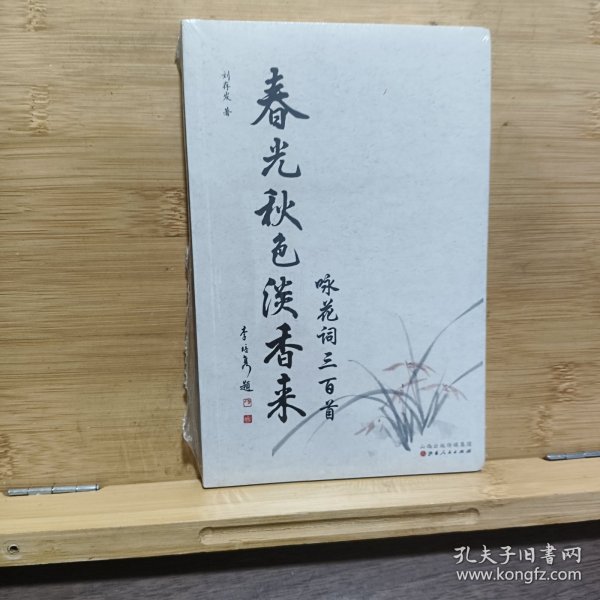 刘存发 著
春光秋色淡香来
咏花词三百首
李培隽题
山西出版传媒集团
山西人民出版社
孔夫子旧书网
www.kongfz.com